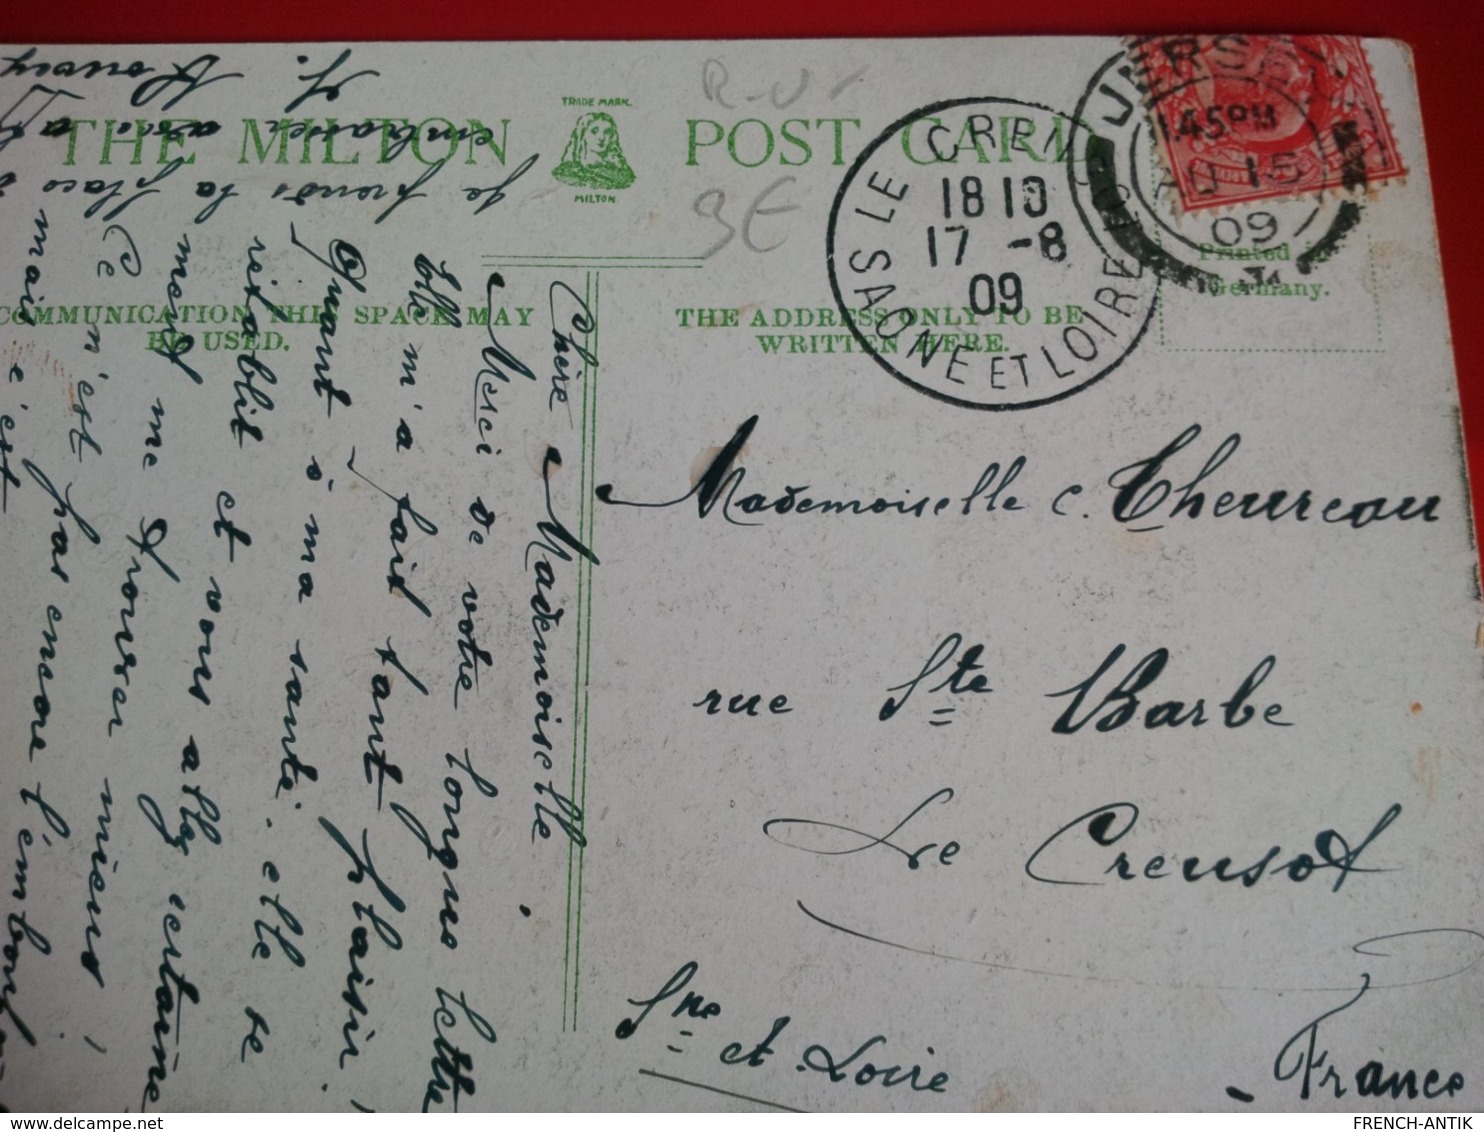 THE MILTON
TRADE MARK
MILTON
POST CARD
R-V
3E
COMMUNICATION THIS SPACE MAY
BE USED.
THE ADDRESS ONLY TO BE
WRITTEN HERE.
Printed in
Germany.
LE CREUSOT
SAONE ET LOIRE
18 10
17 -8
09
JERSEY
1.45PM
AU 15
09
Mademoiselle C. Theureau
rue Ste Barbe
Le Creusot
Sne et Loire
France
Chère Mademoiselle.
Merci de votre longue lettre
Elle m'a fait tant plaisir!
Quant à ma santé. elle se
rétablit et vous allez certaine
ment me trouver mieux,
Ce n'est pas encore l'embonp
mais c'est
Je prends la place
embrasser
FRENCH-ANTIK